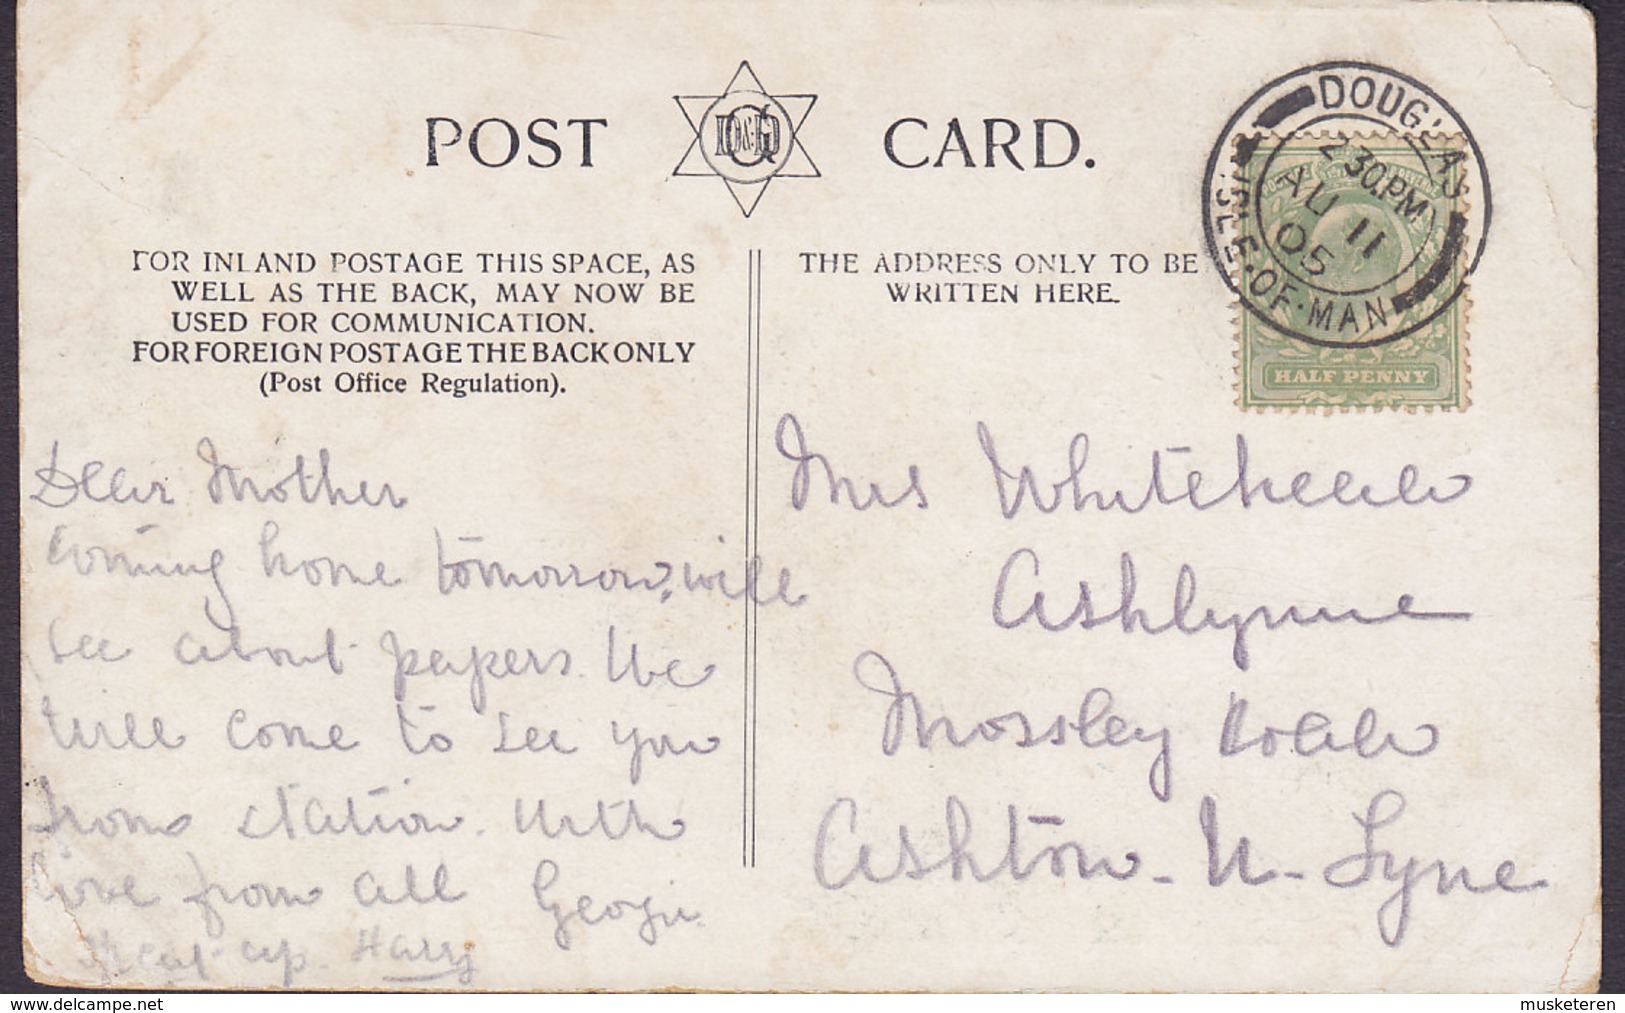 POST CARD.
FOR INLAND POSTAGE THIS SPACE, AS
WELL AS THE BACK, MAY NOW BE
USED FOR COMMUNICATION.
FOR FOREIGN POSTAGE THE BACK ONLY
(Post Office Regulation).
THE ADDRESS ONLY TO BE
WRITTEN HERE.
DOUGLAS
2 30 PM
AU 11
05
ISLE·OF·MAN
HALF PENNY
Dear Mother
Coming home tomorrow, will
see about papers. We
will come to see you
from station. With
love from all Georgie.
Harry
Mrs Whitehead
Ashlynne
Mossley Road
Ashton-U-Lyne
www.delcampe.net
musketeren